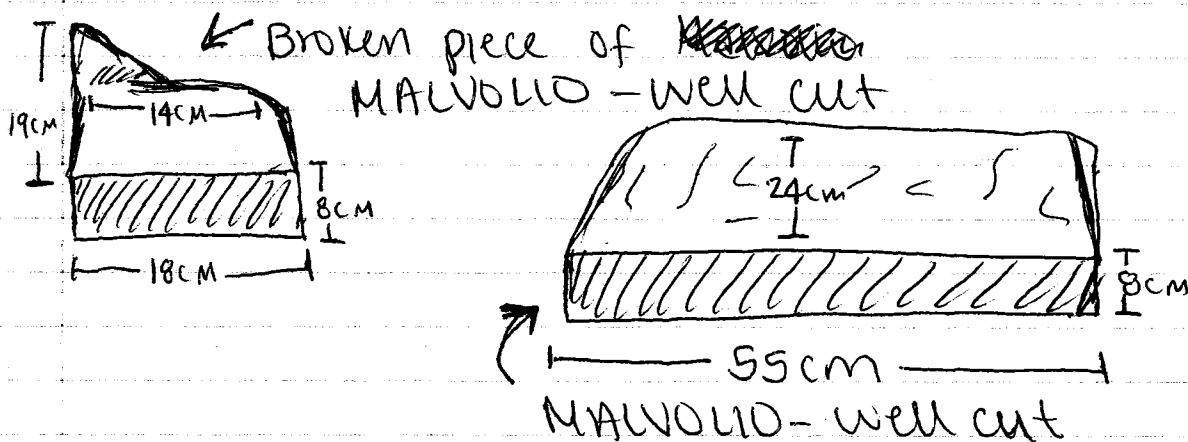 Broken piece of
MALVOLIO - well cut
19cm
14cm
8cm
18cm
24cm
8cm
55cm
MALVOLIO - well cut